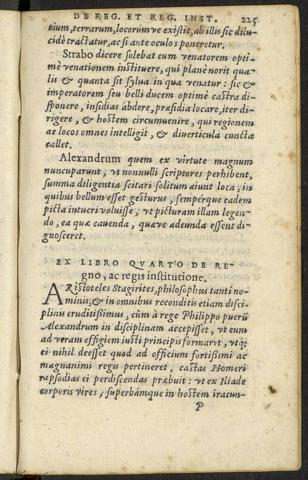 DE REG. ET REG. INST. 225
uium, terrarum, locorum ve existit, ab illis sic dilu-
cidè tractatur, ac si ante oculos poneretur.
Strabo dicere solebat eum venatorem opti-
mè venationem instituere, qui planè norit qua-
lis & quanta sit sylua in qua venatur: sic &
imperatorem seu belli ducem optimè castra di-
sponere, insidias abdere, præsidia locare, iter di-
rigere, & hostem circumuenire, qui regionem
ac locos omnes intelligit, & diuerticula cuncta
callet.
Alexandrum quem ex virtute magnum
nuncuparunt, vt nonnulli scriptores perhibent,
summa diligentia scitari solitum aiunt loca, in
quibus bellum esset gesturus, semperque eadem
picta intueri voluisse, vt picturam illam legen-
do, ea quæ cauenda, quæve adeunda essent di-
gnosceret.
EX LIBRO QVARTO DE RE-
gno, ac regis institutione.
ARistoteles Stagirites, philosophus tanti no-
minis, & in omnibus reconditis etiam disci-
plinis eruditissimus, cùm à rege Philippo puerũ
Alexandrum in disciplinam accepisset, vt eum
ad veram effigiem iusti principis formaret, vtq;
ei nihil deesset quod ad officium fortissimi ac
magnanimi regis pertineret, castas Homeri
rapsodias ei perdiscendas præbuit: vt ex Iliade
corporis vires, superbámque in hostem iracun-
P